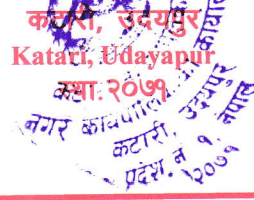 कटारी, उदयपुर
Katari, Udayapur
स्था: २०७१
नगर कार्यपालिका
कटारी, उदयपुर
प्रदेश नं १, नेपाल
२०७१